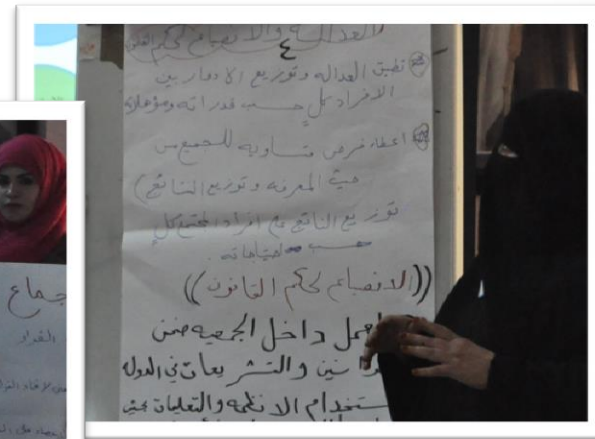 العدالة والانصياع لحكم القانون
٤
تطبيق العداله وتوزيع الادوار بين
الافراد كل حسب قدراته ومؤهلاته
اعطاء فرص متساويه للجميع من
حيث المعرفه وتوزيع الناتج)
توزيع الناتج مع افراد المجتمع كل
حسب احتياجاته.
((الانصياع لحكم القانون))
العمل داخل الجمعيه ضمن
والتشريعات في الدوله
ستخدام الانظمه والتعليمات بحيث
جماع
القرار